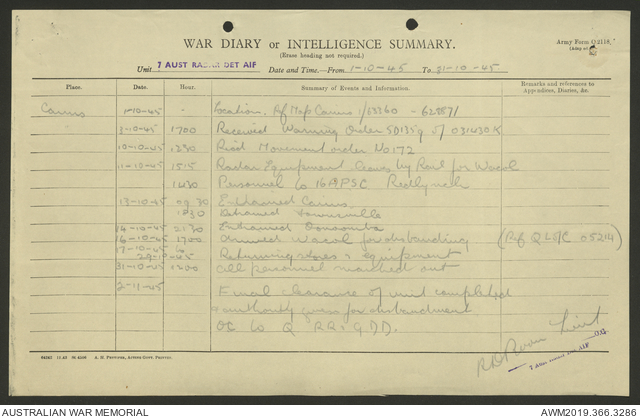 Army Form C.2118.
WAR DIARY or INTELLIGENCE SUMMARY.
(Erase heading not required.)
Unit 7 AUST RADAR DET AIF Date and Time—From 1-10-45 To 31-10-45
Place. Date. Hour. Summary of Events and Information. Remarks and references to Appendices, Diaries, &c.
Cairns 1-10-45 - Location. Ref Map Cairns 1/63360 - 628871
3-10-45 1700 Received Warning Order of 031430K
10-10-45 1230 Movement order No 172
11-10-45 1515 Radar Equipment leaves by Rail for Wacol
1430 Personnel to PSC Redlynch
13-10-45 09 30 Entrained Cairns
1230 Townsville
14-10-45 2130 Entrained
16-10-45 1700 Arrived Wacol for disbanding (Ref Q L of C 05214)
17-10-45 to
29-10-45 Returning stores & equipment
31-10-45 1200 All personnel marched out
2-11-45 Final clearance of unit completed
& authority given for disbandment
OC to Q
Lieut
AUSTRALIAN WAR MEMORIAL AWM2019.366.3286